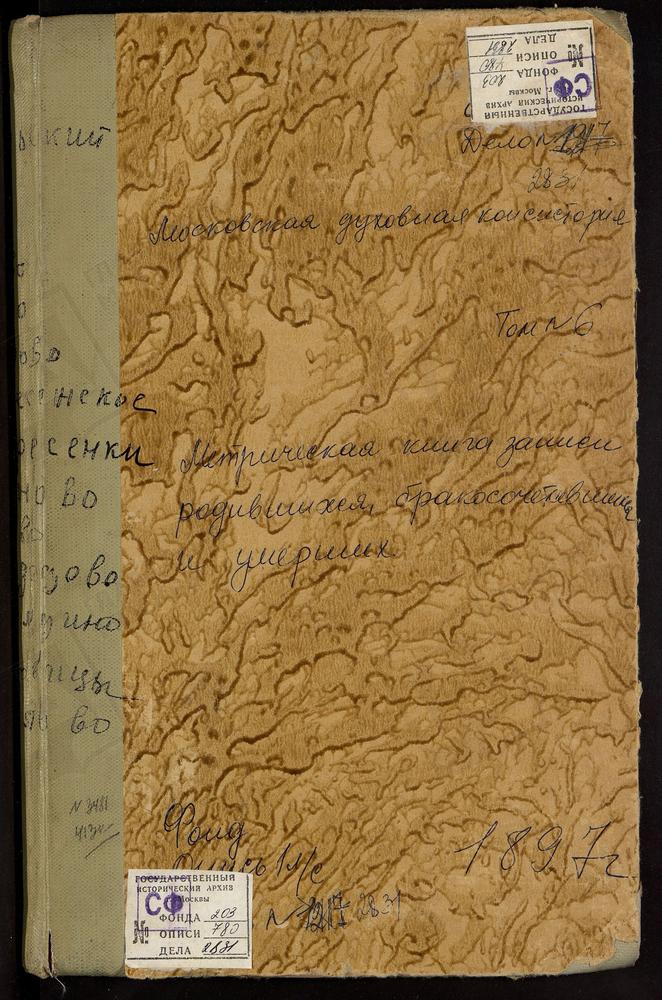 ГОСУДАРСТВЕННЫЙ
ИСТОРИЧЕСКИЙ АРХИВ
г. Москвы
СФ
ФОНДА 203
№ ОПИСИ 780
ДЕЛА 2831
Дело №
2831
Московская духовная консистория
Том № 6
Метрическая книга записи
родившихся, бракосочетавшихся
и умерших.
1897 г
Фонд
Опись 1 м/с
№ 2831
ГОСУДАРСТВЕННЫЙ
ИСТОРИЧЕСКИЙ АРХИВ
г. Москвы
СФ
ФОНДА 203
№ ОПИСИ 780
ДЕЛА 2831
ский
о
ово
енское
есенки
ново
во
ово
ино
ицы
во